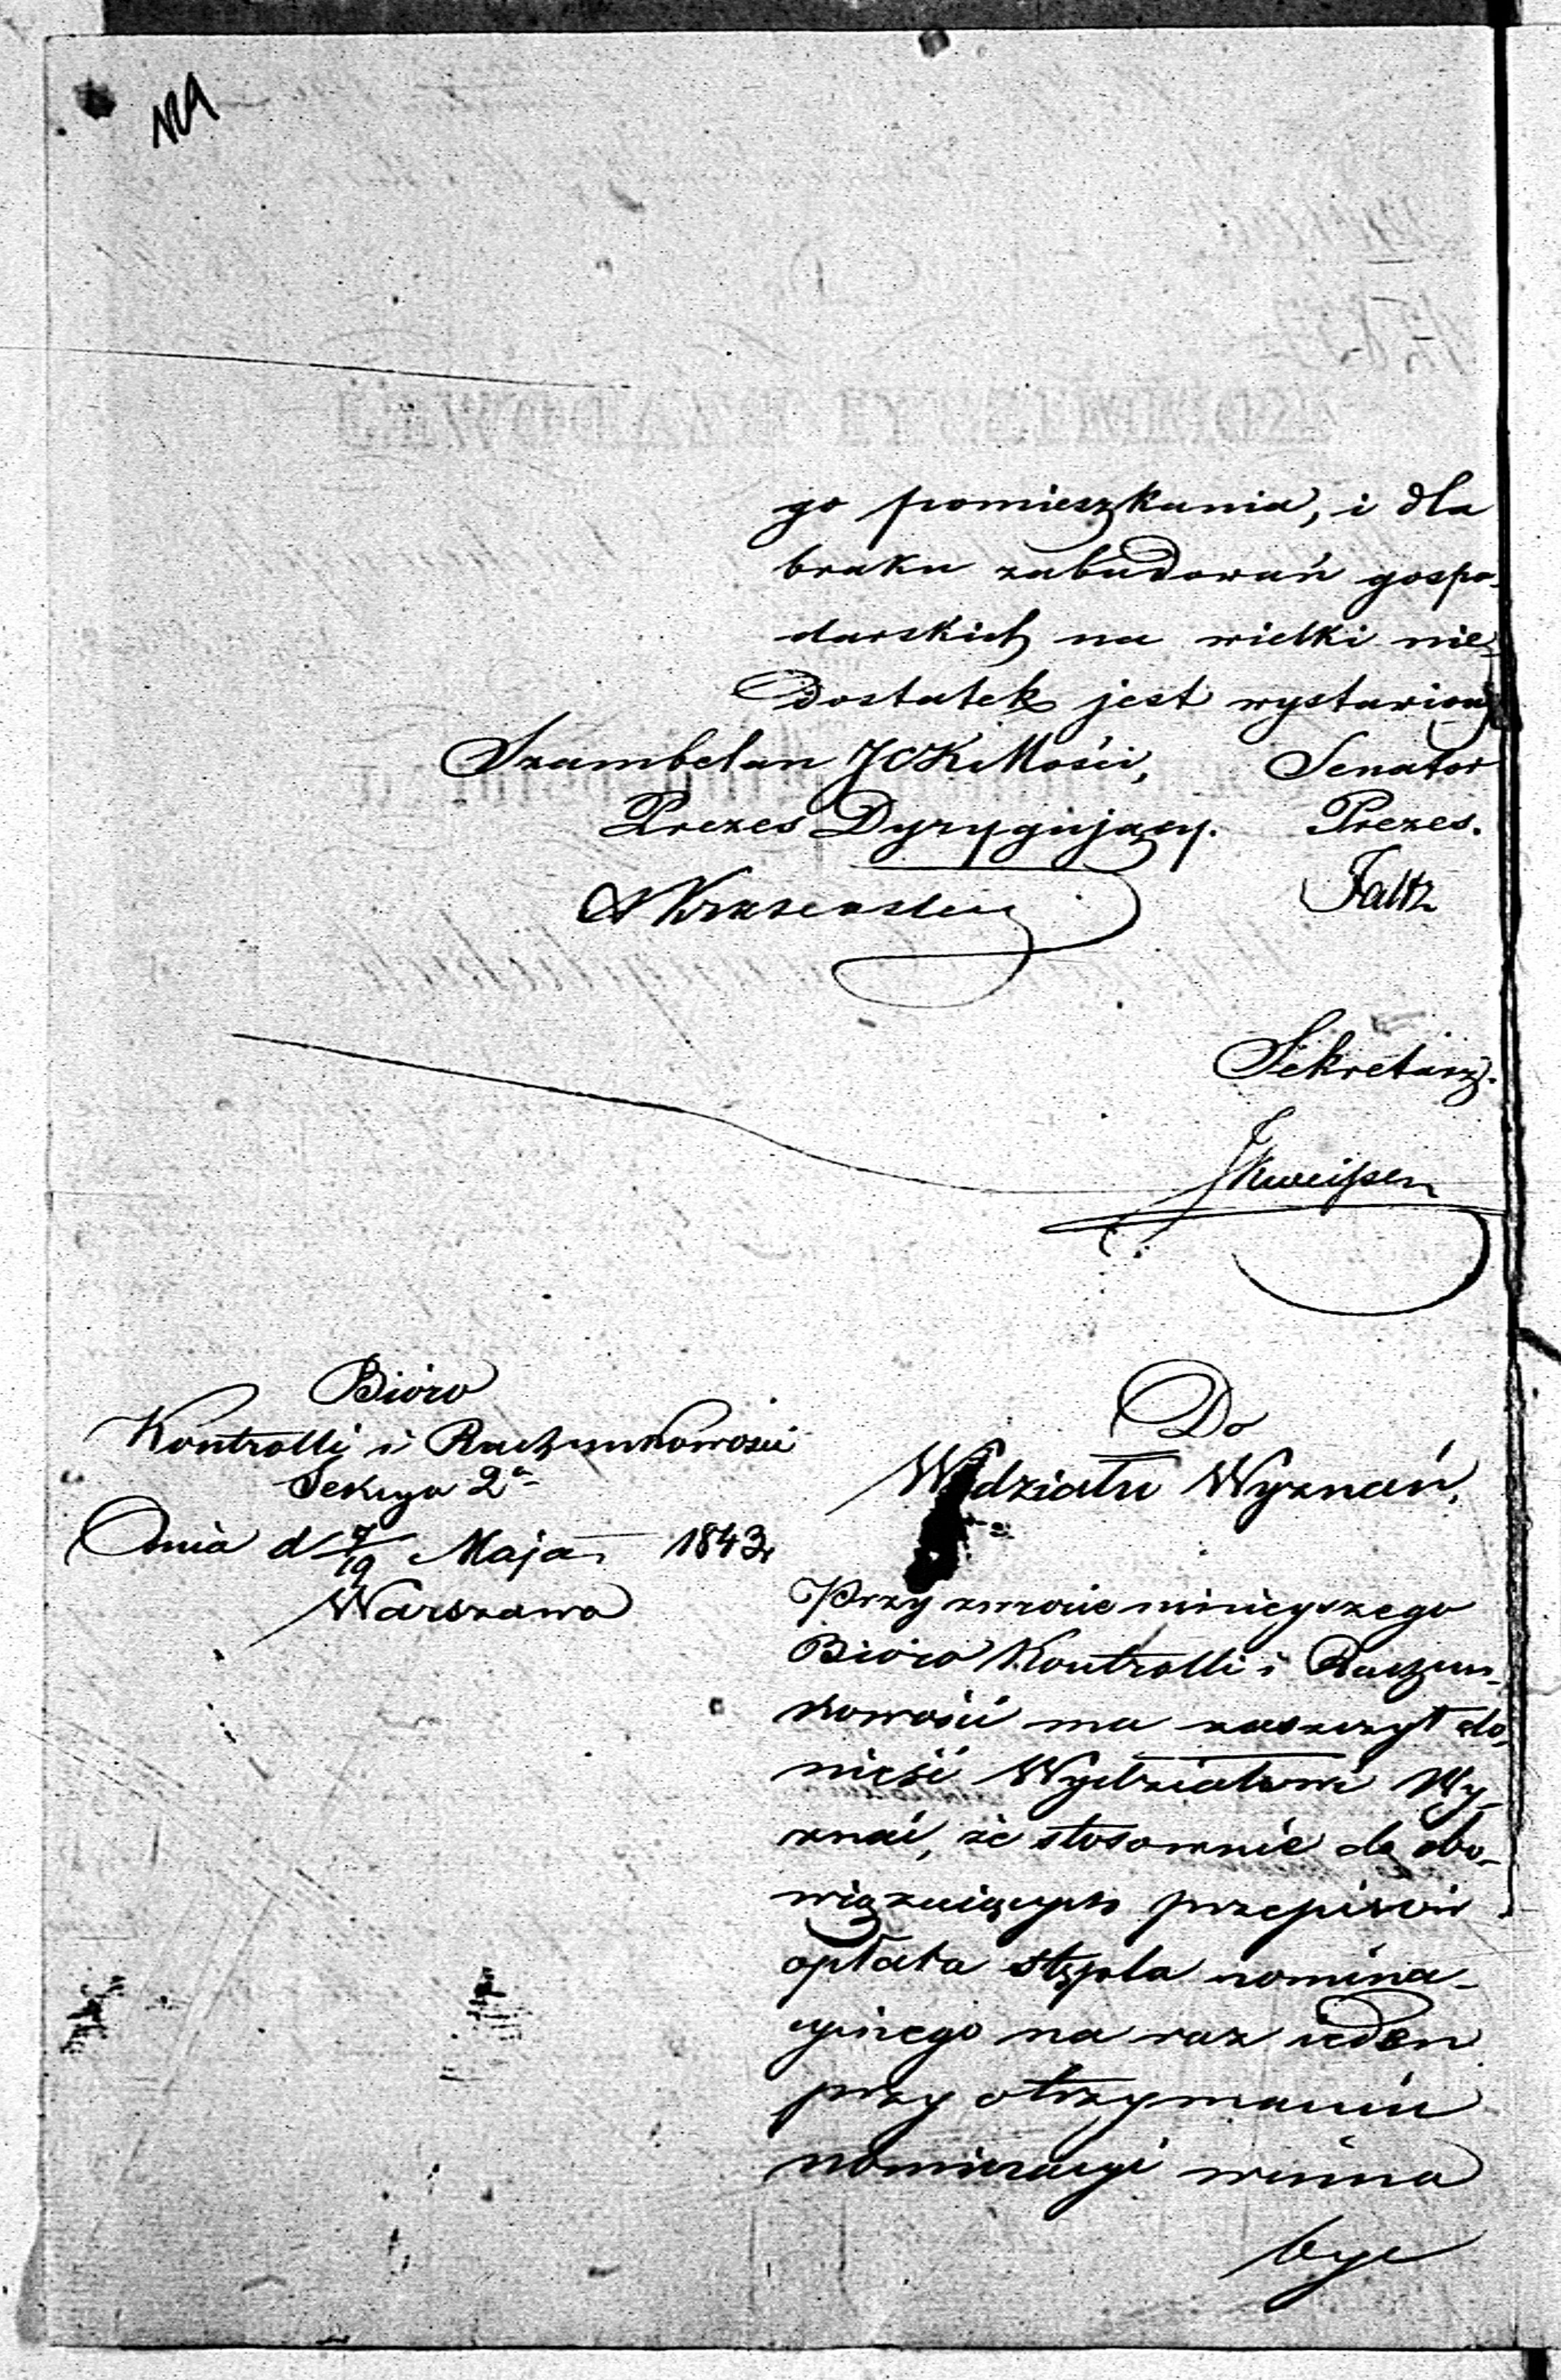 go pomieszkania, i dla
braku zabudowań gospo-
darskich na wielki nie-
dostatek jest wystawiony
Szambelan JCKMości, Senator
Prezes Dyrygujący. Prezes.
Sekretarz.
Bióro
Kontrolli i Rachunkowości
Sekcya 2ª
Dnia d 7/19 Maja 1843
Warszawa
Do
Wydziału Wyznań.
Przy zwrocie ninieyszego
Bióro Kontrolli i Rachun-
kowości ma zaszczyt do-
nieść Wydziałowi Wy-
znań, że stosownie do obo-
wiązuiących przepisów
opłata stępla nomina-
cyinego na raz ieden
przy otrzymaniu
nominacyi winna
być